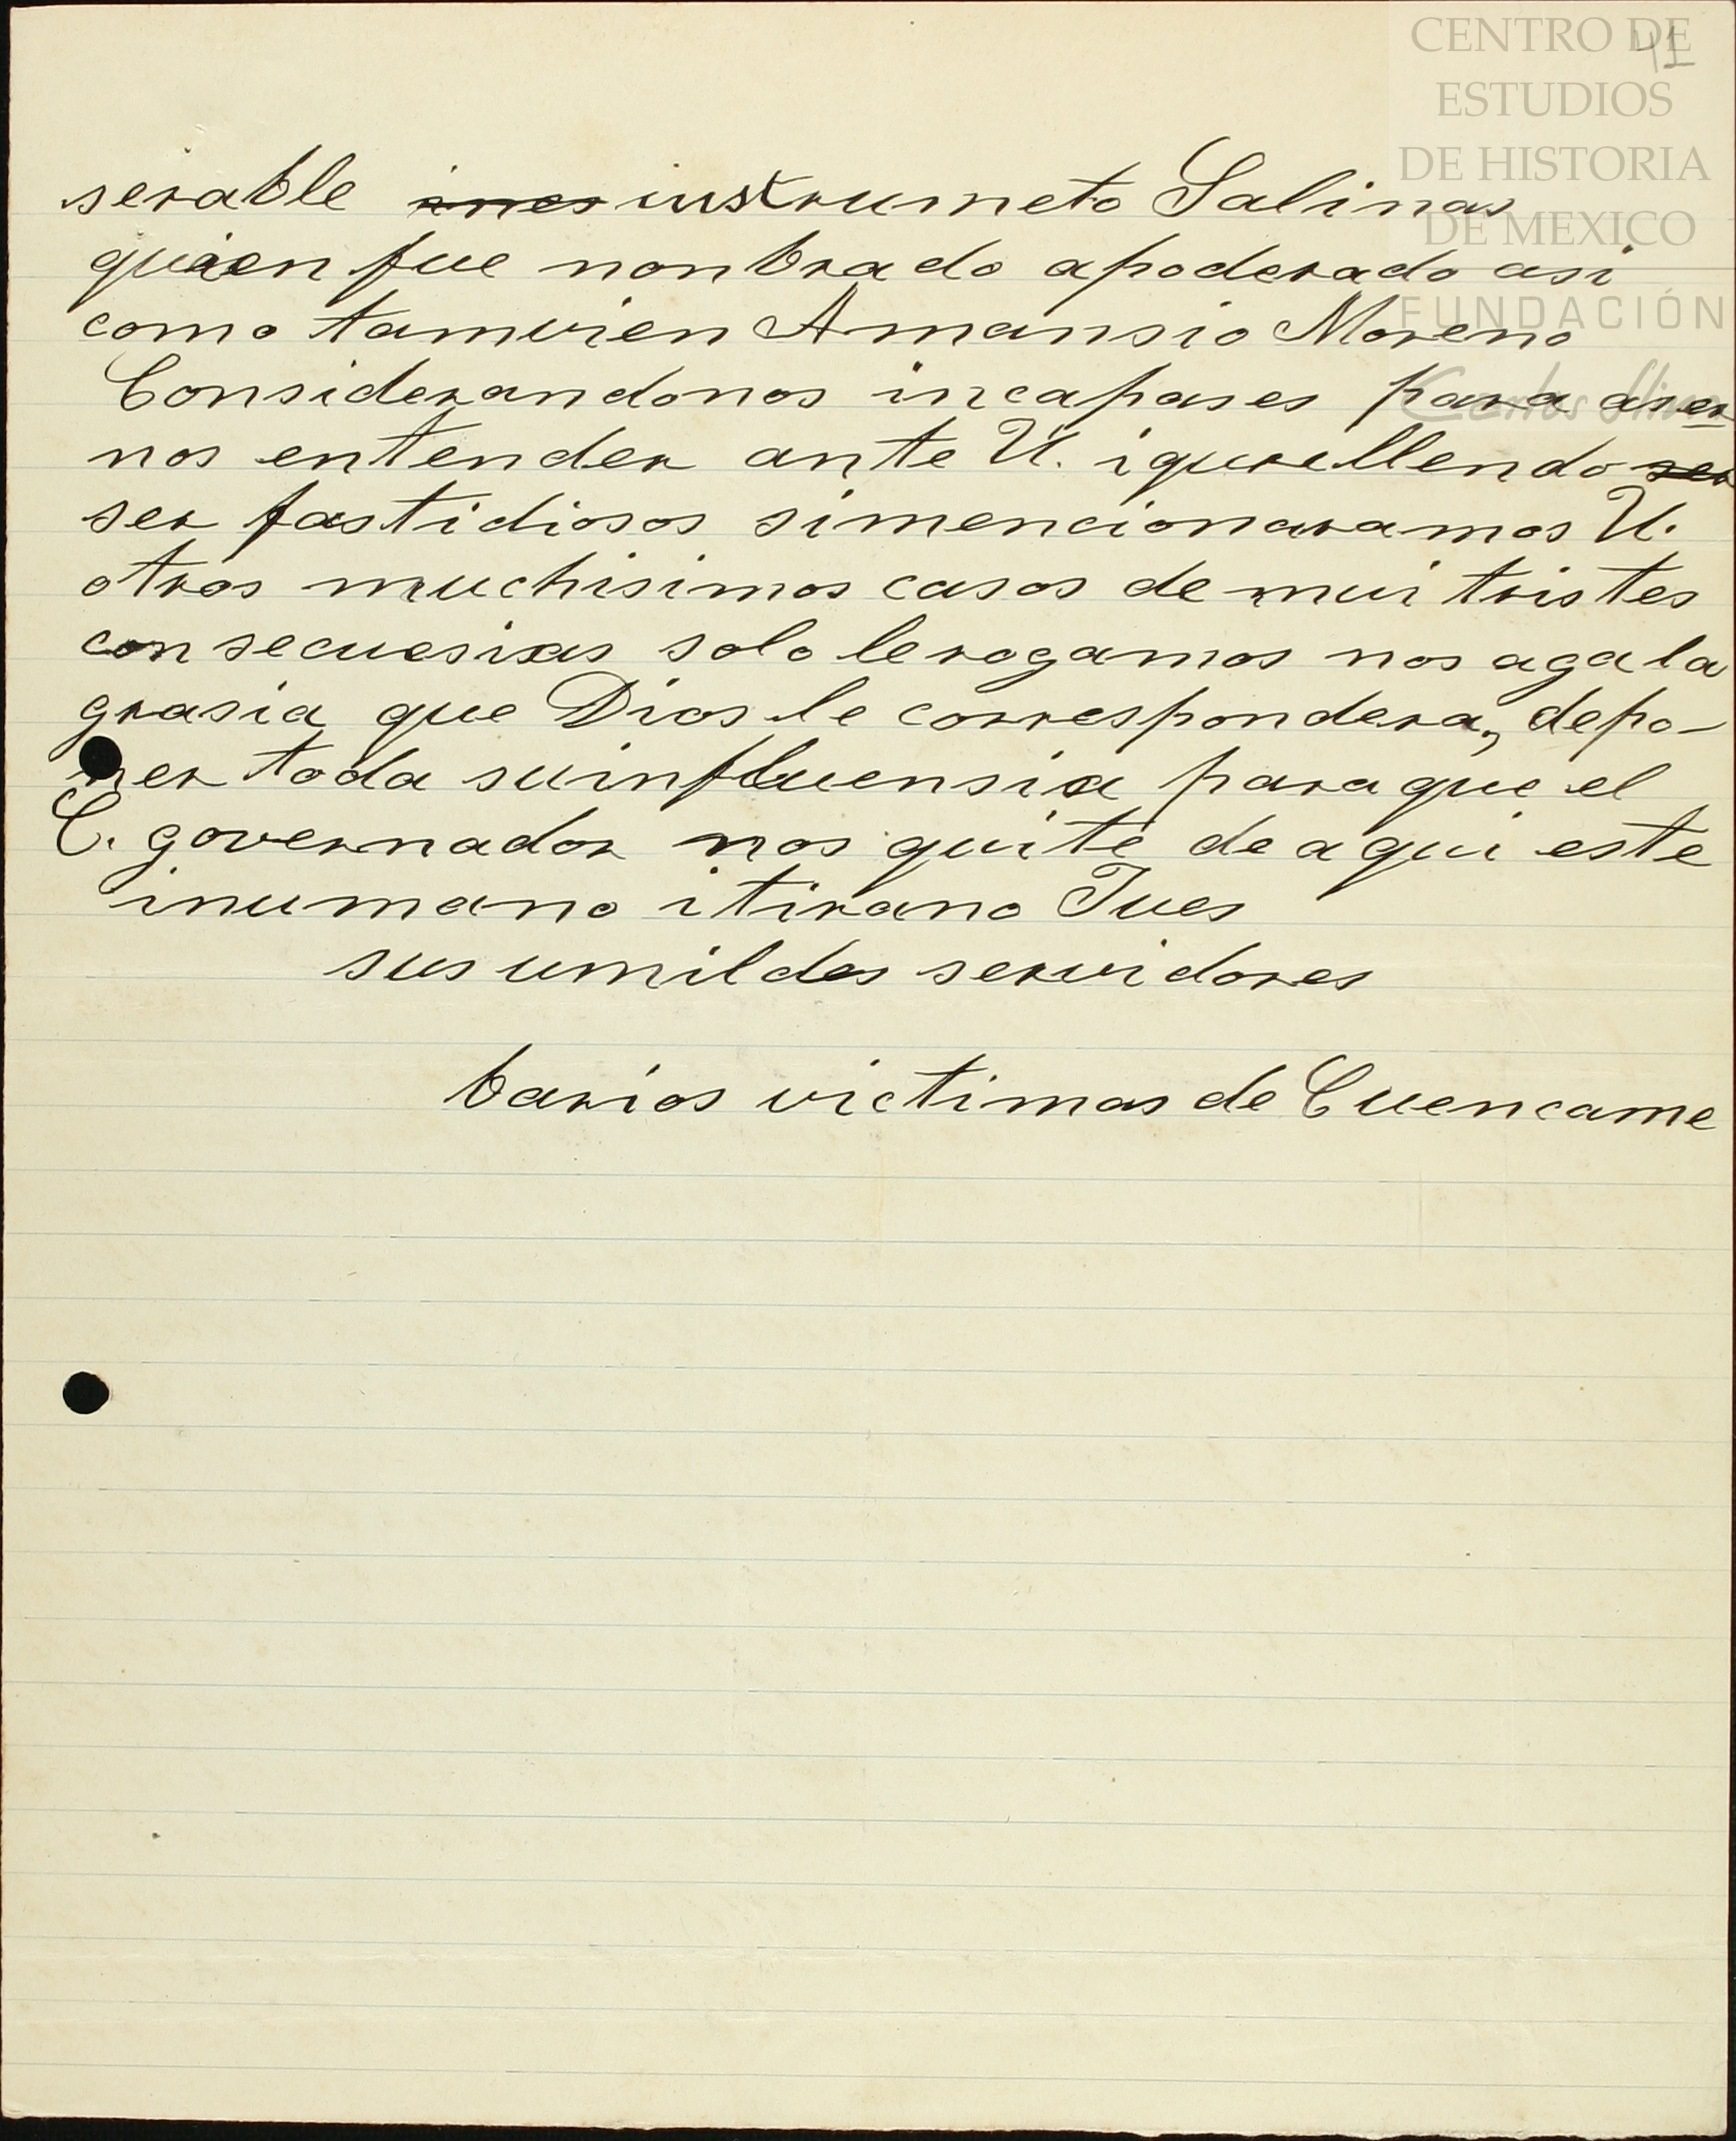 CENTRO DE
ESTUDIOS
DE HISTORIA
DE MEXICO
FUNDACIÓN
Carlos Slim
41
serable instrumeto Salinas
quien fue nonbrado apoderado asi
como tamvien Amansio Moreno
Considerandonos incapases para aser
nos entender ante U. i qurellendo ser
ser fastidiosos simencionaramos U.
otros muchisimos casos de mui tristes
consecuesias solo lerogamos nos aga la
grasia que Dios le correspondera, depo-
ner toda suinfluensia paraque el
C. governador nos quite de aqui este
inumano itirano Jues
sus umildes servidores
barios victimas de Cuencame